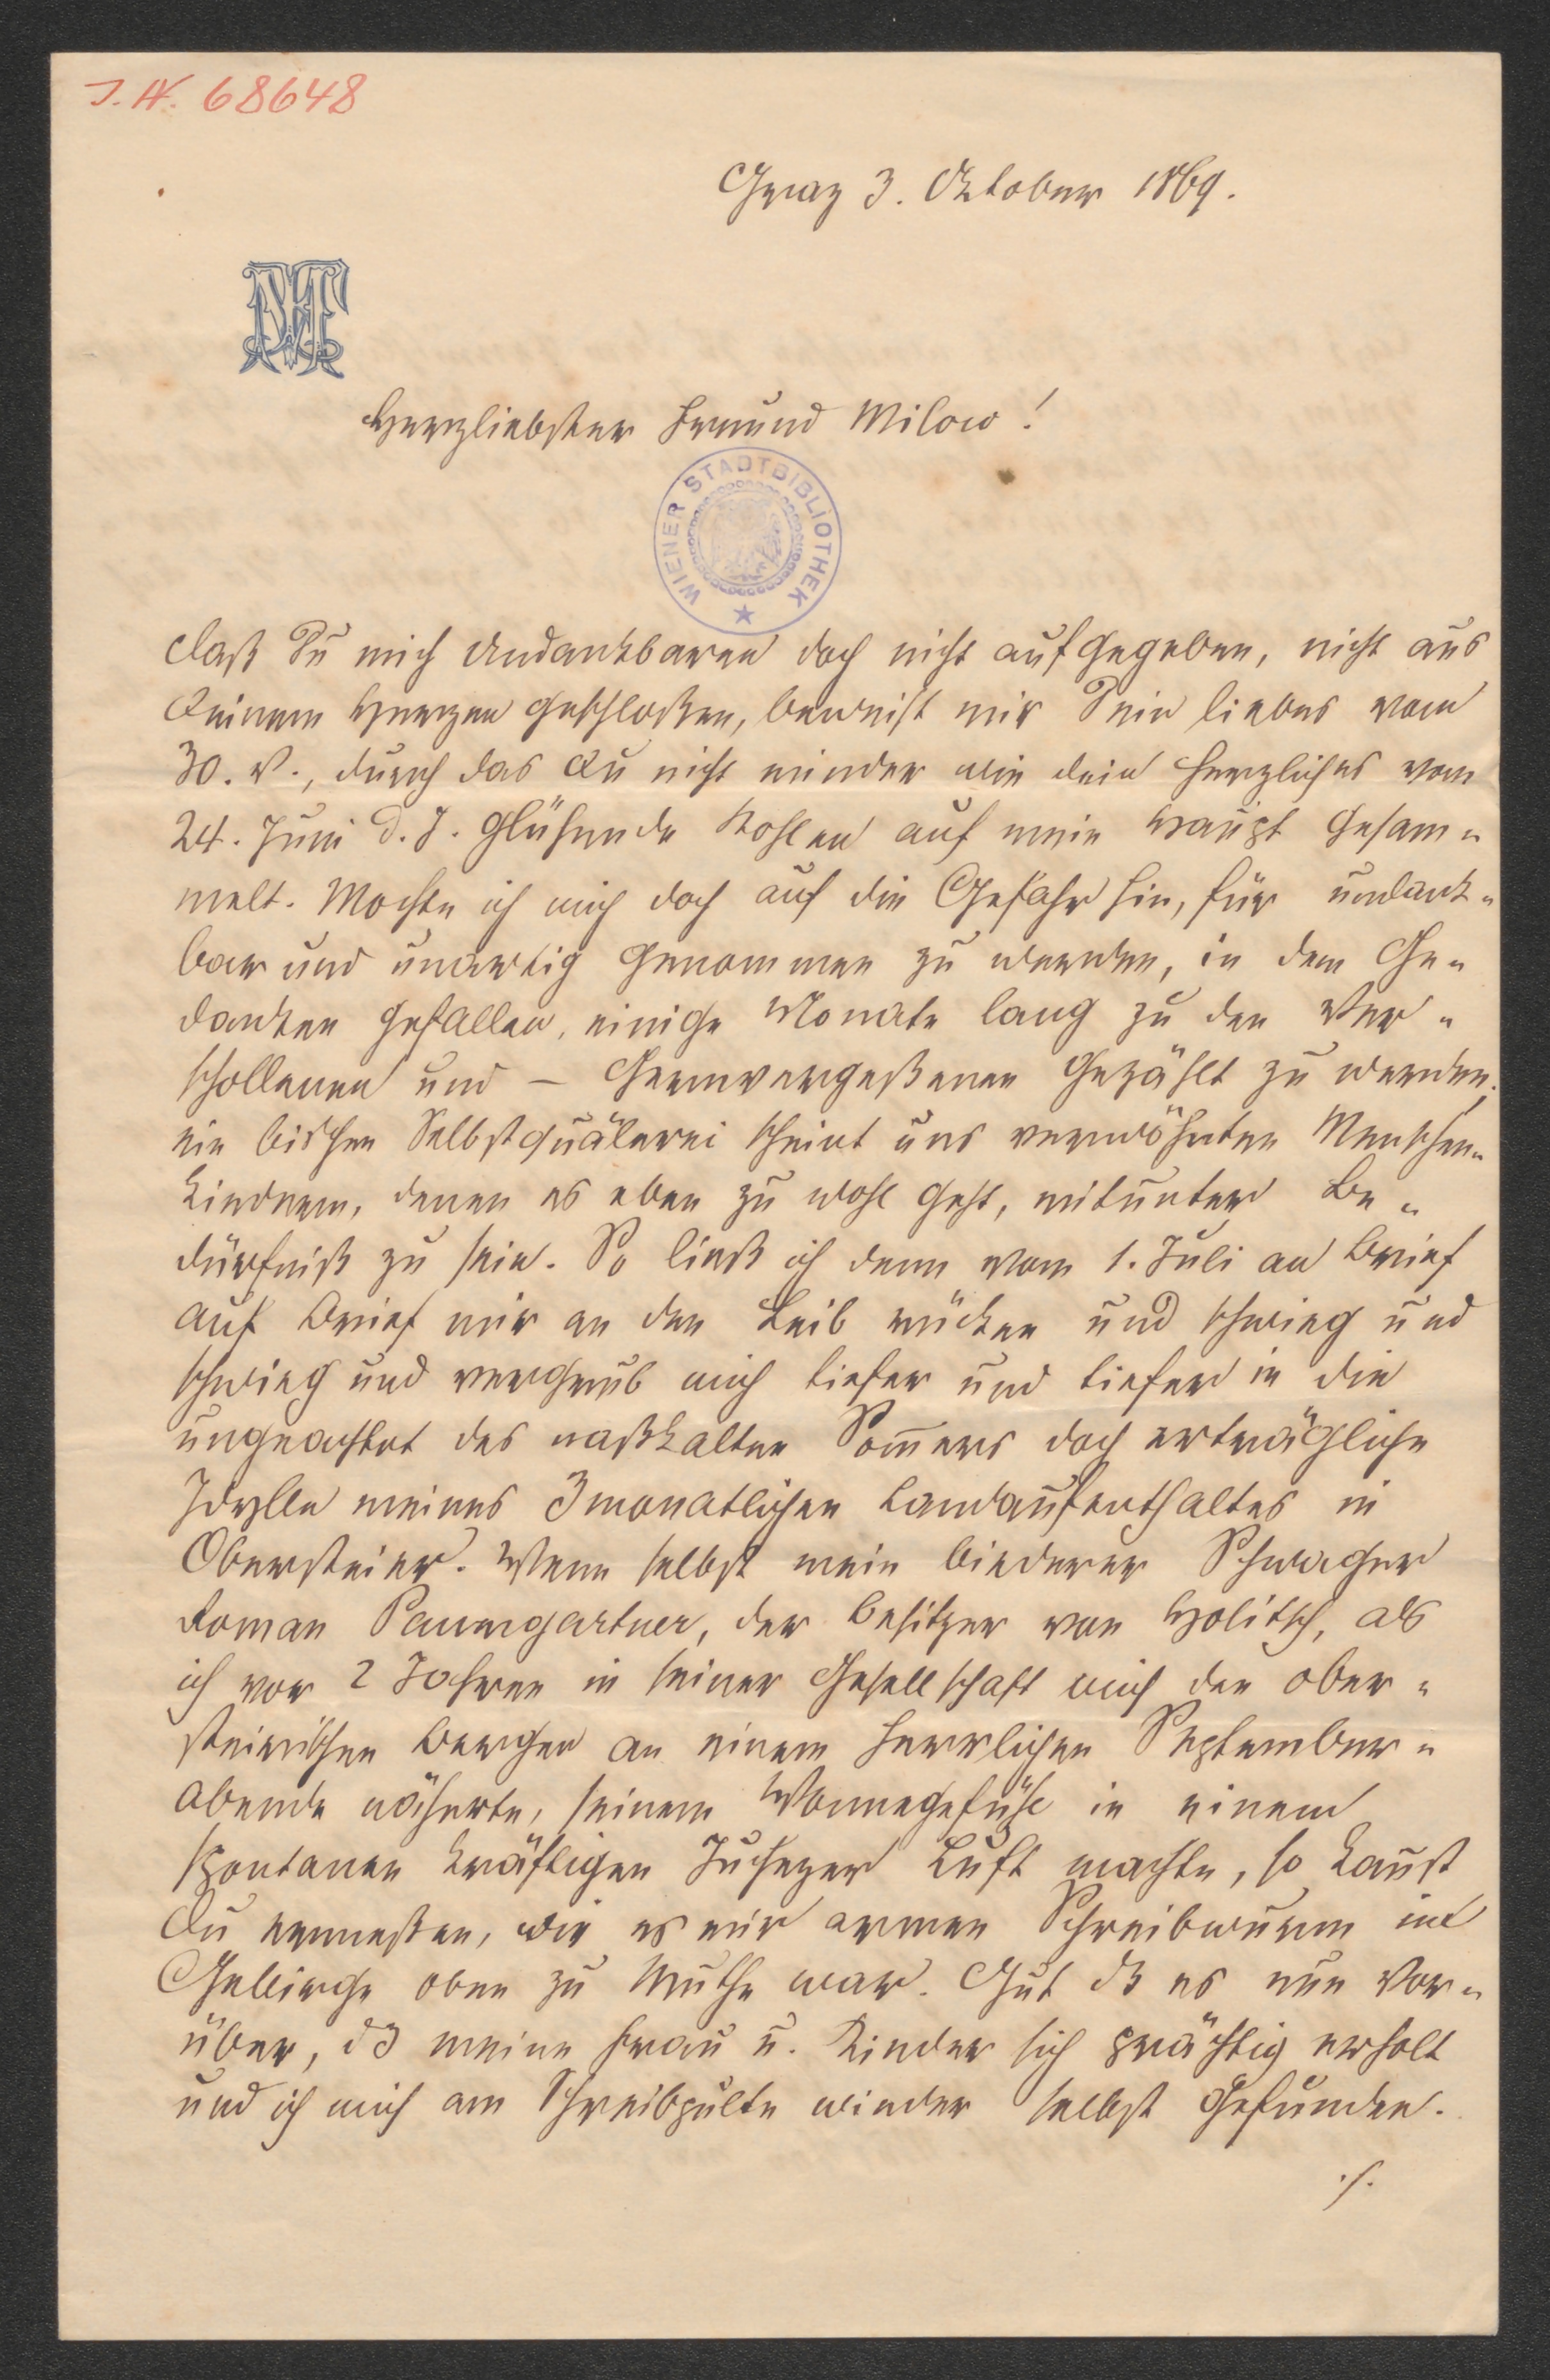 J. N. 68648
Graz 3. Oktober 1869.
MT
Herzliebster Freund Milow!
WIENER STADTBIBLIOTHEK
daß Du mich Undankbaren doch nicht aufgegeben, nicht aus
Deinem Herzen geschloßen, beweist mir Dein liebes vom
30. v., durch das Du nicht minder wie dein herzliches vom
24. Juni d. J. glühende Kohlen auf mein Haupt gesam-
melt. Mochte ich mich doch auf die Gefahr hin, für undank-
bar und unartig genommen zu werden, in dem Ge-
danken gefallen, einige Monate lang zu den Ver-
schollenen und – Gernvergeßenen gezählt zu werden.
ein bischen Selbstquälerei scheint uns verwöhnten Menschen-
kindern, denen es eben zu wohl geht, mitunter Be-
dürfniß zu sein. So ließ ich denn vom 1. Juli an Brief
auf Brief mir an den Leib rücken und schwieg und
schwieg und vergrub mich tiefer und tiefer in die
ungeachtet des naßkalten Som̅ers doch erträgliche
Idylle meines 3monatlichen Landaufenthaltes in
Obersteier. Wenn selbst mein biederer Schwager
Roman Paumgartner, der Besitzer von Holitsch, als
ich vor 2 Jahren in seiner Gesellschaft mich den ober-
steirischen Bergen an einem herrlichen September-
abende näherte, seinem Wonnegefühl in einem
spontanen kräftigen Juchezer Luft machte, so kannst
Du ermeßen, wie es mir armen Schreibwurm im
Gebirge oben zu Muthe war. Gut dß es nun vor-
über, dß meine Frau u. Kinder sich prächtig erholt
und ich mich am Schreibpulte wieder selbst gefunden.
./.